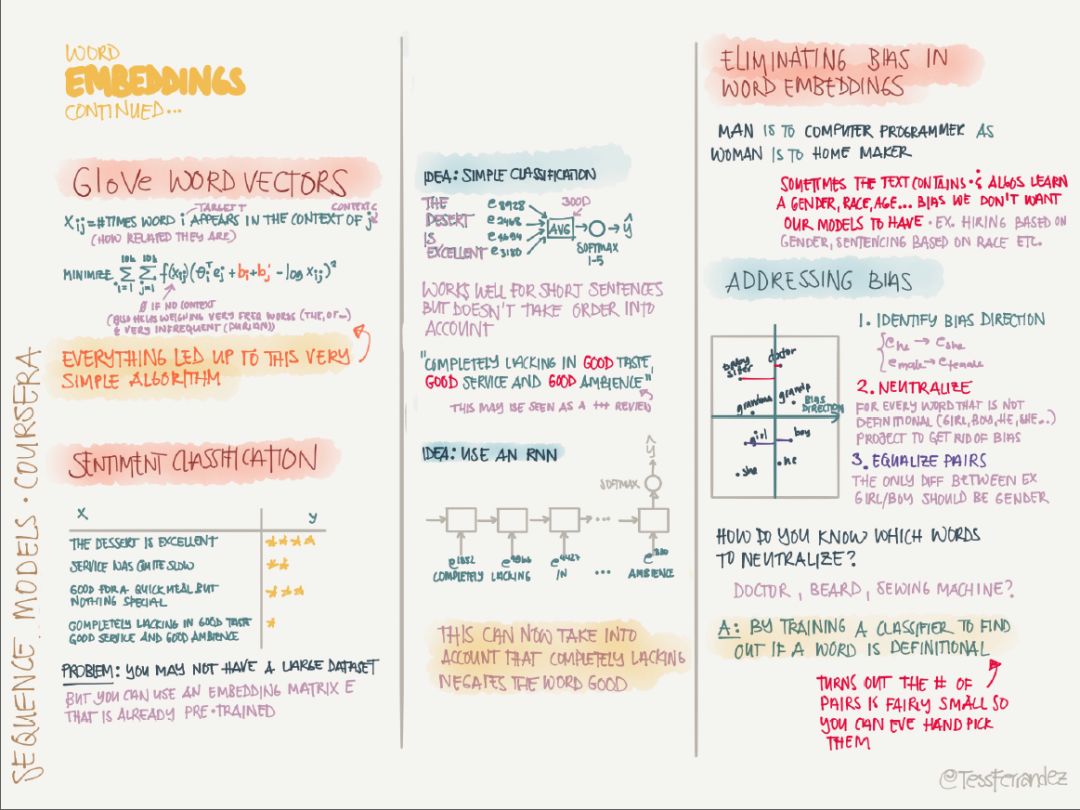 WORD
EMBEDDINGS
CONTINUED...
GloVe WORD VECTORS
TARGET CONTEXT
Xij = # TIMES WORD i APPEARS IN THE CONTEXT OF j
(HOW RELATED THEY ARE)
MINIMIZE 10k Σ i=1 10k Σ j=1 f(xij)(θiᵀej + bi + bj' - log xij)²
0 IF NO CONTEXT
(ALSO HELPS WEIGHING VERY FREQ WORDS (THE, OF...)
& VERY INFREQUENT (DURIAN))
EVERYTHING LED UP TO THIS VERY
SIMPLE ALGORITHM
SENTIMENT CLASSIFICATION
X y
THE DESSERT IS EXCELLENT ★★★★
SERVICE WAS QUITE SLOW ★★
GOOD FOR A QUICK MEAL BUT ★★★
NOTHING SPECIAL
COMPLETELY LACKING IN GOOD TASTE ★
GOOD SERVICE AND GOOD AMBIENCE
PROBLEM: YOU MAY NOT HAVE A LARGE DATASET
BUT YOU CAN USE AN EMBEDDING MATRIX E
THAT IS ALREADY PRE-TRAINED
SEQUENCE MODELS · COURSERA
IDEA: SIMPLE CLASSIFICATION
THE e8928
DESERT e2468
IS e4694
EXCELLENT e3180
300D
AVG → ŷ
SOFTMAX
1-5
WORKS WELL FOR SHORT SENTENCES
BUT DOESN'T TAKE ORDER INTO
ACCOUNT
"COMPLETELY LACKING IN GOOD TASTE,
GOOD SERVICE AND GOOD AMBIENCE"
THIS MAY BE SEEN AS A +++ REVIEW
IDEA: USE AN RNN
ŷ
SOFTMAX
...
e1852 e4966 e4427 e330
COMPLETELY LACKING IN ... AMBIENCE
THIS CAN NOW TAKE INTO
ACCOUNT THAT COMPLETELY LACKING
NEGATES THE WORD GOOD
ELIMINATING BIAS IN
WORD EMBEDDINGS
MAN IS TO COMPUTER PROGRAMMER AS
WOMAN IS TO HOME MAKER
SOMETIMES THE TEXT CONTAINS & ALGOS LEARN
A GENDER, RACE, AGE... BIAS WE DON'T WANT
OUR MODELS TO HAVE · EX. HIRING BASED ON
GENDER, SENTENCING BASED ON RACE ETC.
ADDRESSING BIAS
baby
sitter
doctor
grandma
grandp
BIAS
DIRECTION
girl
boy
she
he
1. IDENTIFY BIAS DIRECTION
{ ehe → eshe
emale → efemale
2. NEUTRALIZE
FOR EVERY WORD THAT IS NOT
DEFINITIONAL (GIRL, BOY, HE, SHE...)
PROJECT TO GET RID OF BIAS
3. EQUALIZE PAIRS
THE ONLY DIFF BETWEEN EX
GIRL/BOY SHOULD BE GENDER
HOW DO YOU KNOW WHICH WORDS
TO NEUTRALIZE?
DOCTOR, BEARD, SEWING MACHINE?
A: BY TRAINING A CLASSIFIER TO FIND
OUT IF A WORD IS DEFINITIONAL
TURNS OUT THE # OF
PAIRS IS FAIRLY SMALL SO
YOU CAN EVE HAND PICK
THEM
@TessFerrandez